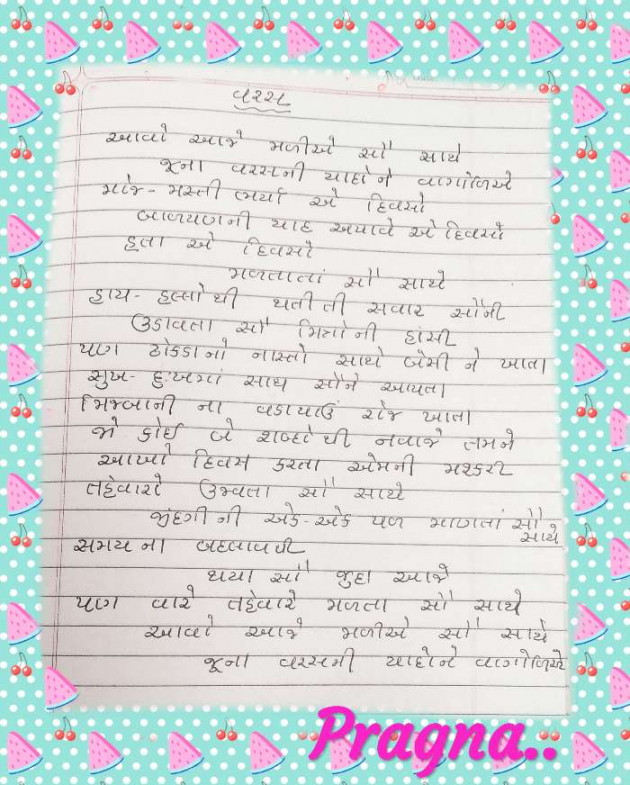 વરસ
આવો આજે મળીએ સૌ સાથે
જૂના વરસની યાદોને વાગોળિએ
મોજ-મસ્તી ભર્યા એ દિવસો
બાળપણની યાદ અપાવે એ દિવસો
હતા એ દિવસો
મળતાતાં સૌ સાથે
હાય-હલ્લોથી થતીતી સવાર સૌની
ઉડાવતા સૌ મિત્રોની હાંસી
પણ ઢોકળાનો નાસ્તો સાથે બેસી ને ખાતા
સુખ-દુઃખમાં સાથ સૌને આપતા
મિજબાની ના વડાપાઉં રોજ ખાતા
જો કોઈ બે શબ્દોથી નવાજે તમને
આખો દિવસ કરતા એમની મશ્કરી
તહેવારો ઉજવતા સૌ સાથે
જીંદગી ની એક-એક પળ માણતાં સૌ સાથે
સમય ના બદલાવથી
થયા સૌ જુદા આજે
પણ વારે તહેવારે મળતા સૌ સાથે
આવો આજે મળીએ સૌ સાથે
જૂના વરસની યાદોને વાગોળિએ
Pragna..